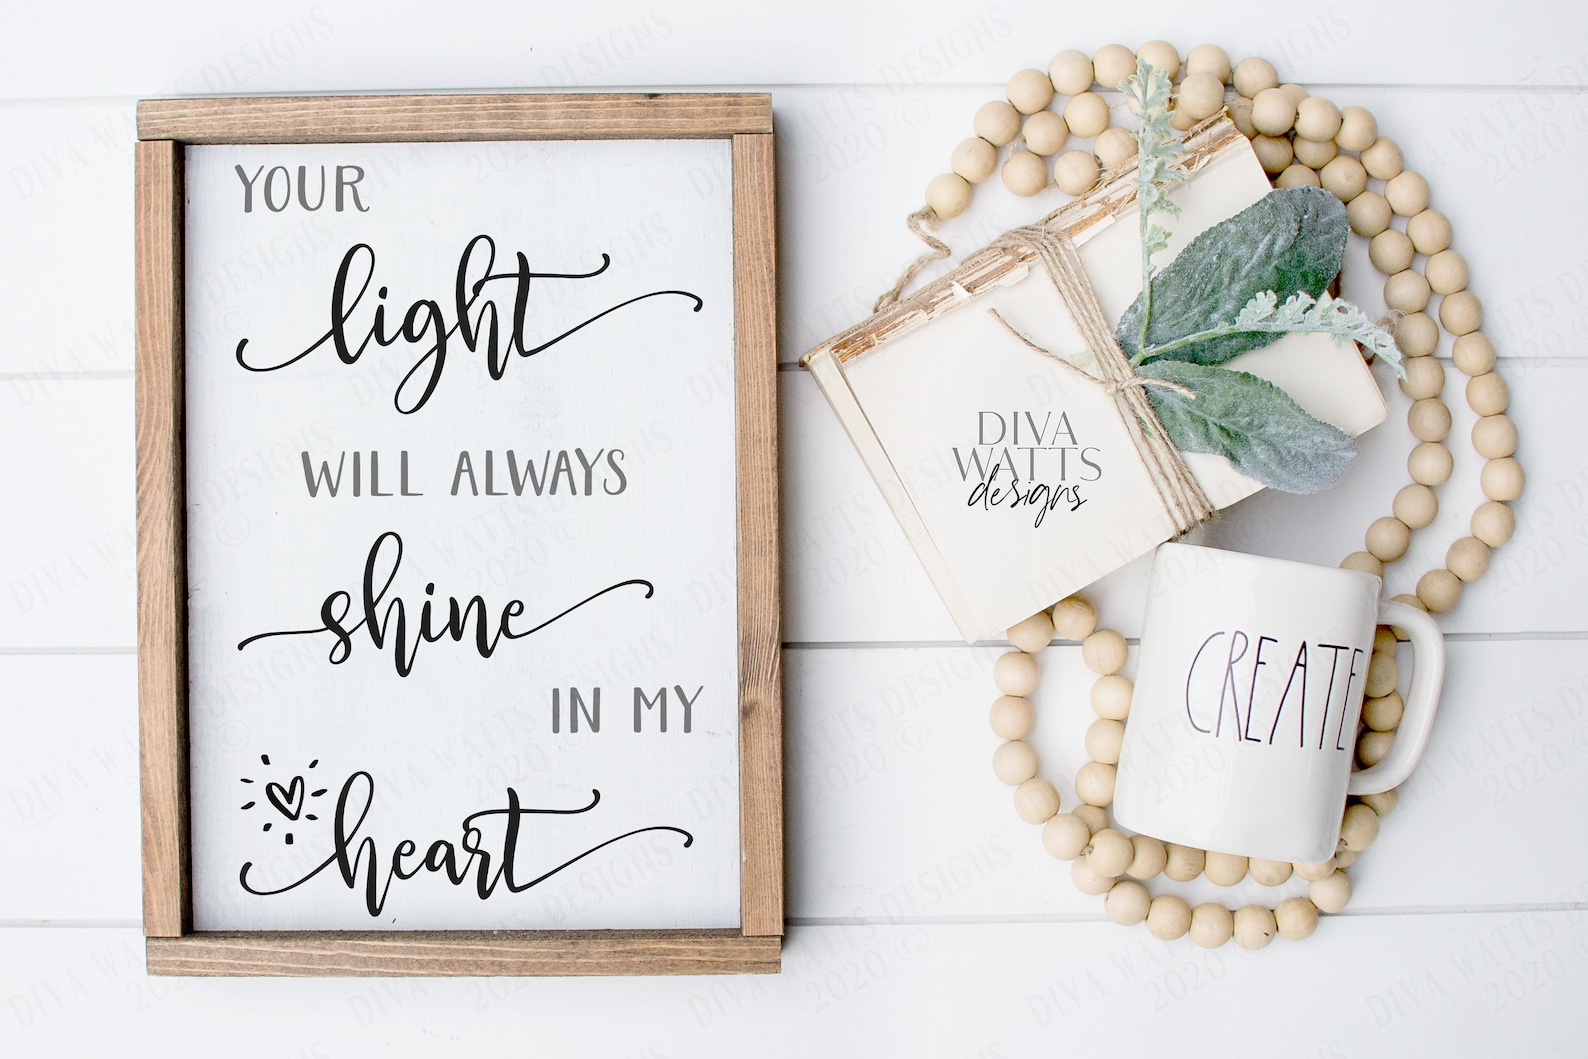 YOUR
light
WILL ALWAYS
shine
IN MY
heart
DIVA
WATTS
designs
CREATE
DIVA WATTS DESIGNS
2020 ©